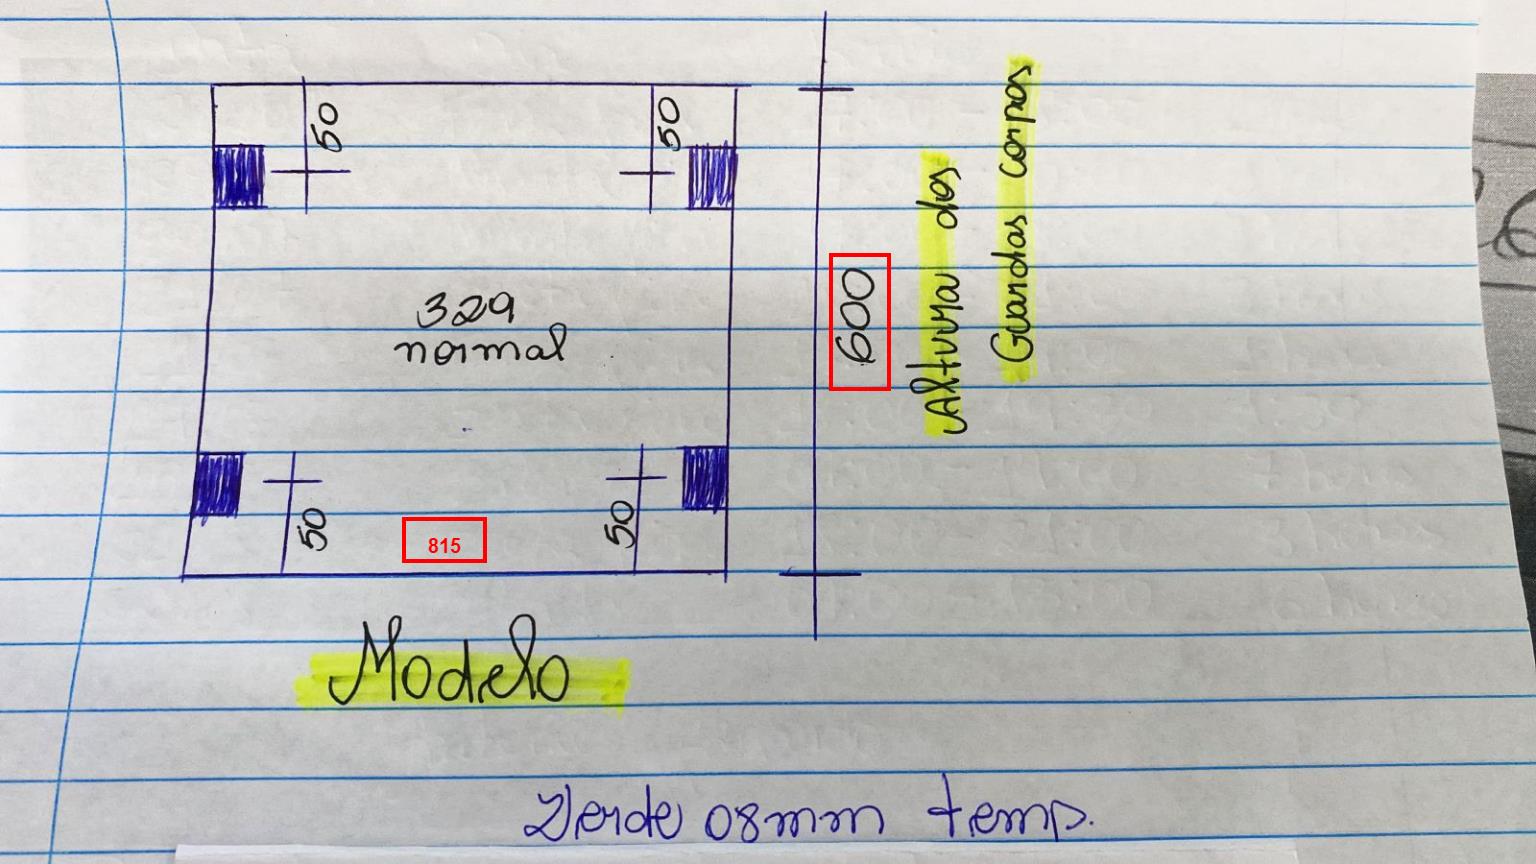 50
50
329
normal
600
Altura dos
Guardas corpos
50
50
815
Modelo
Verde 08mm temp.